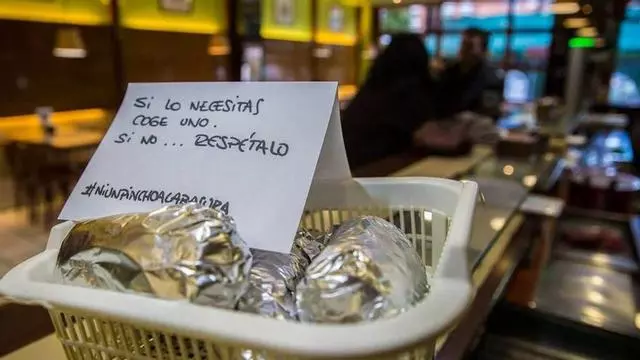 SI LO NECESITAS
COGE UNO.
SI NO... RESPÉTALO
#NIUNPINCHOALABASURA